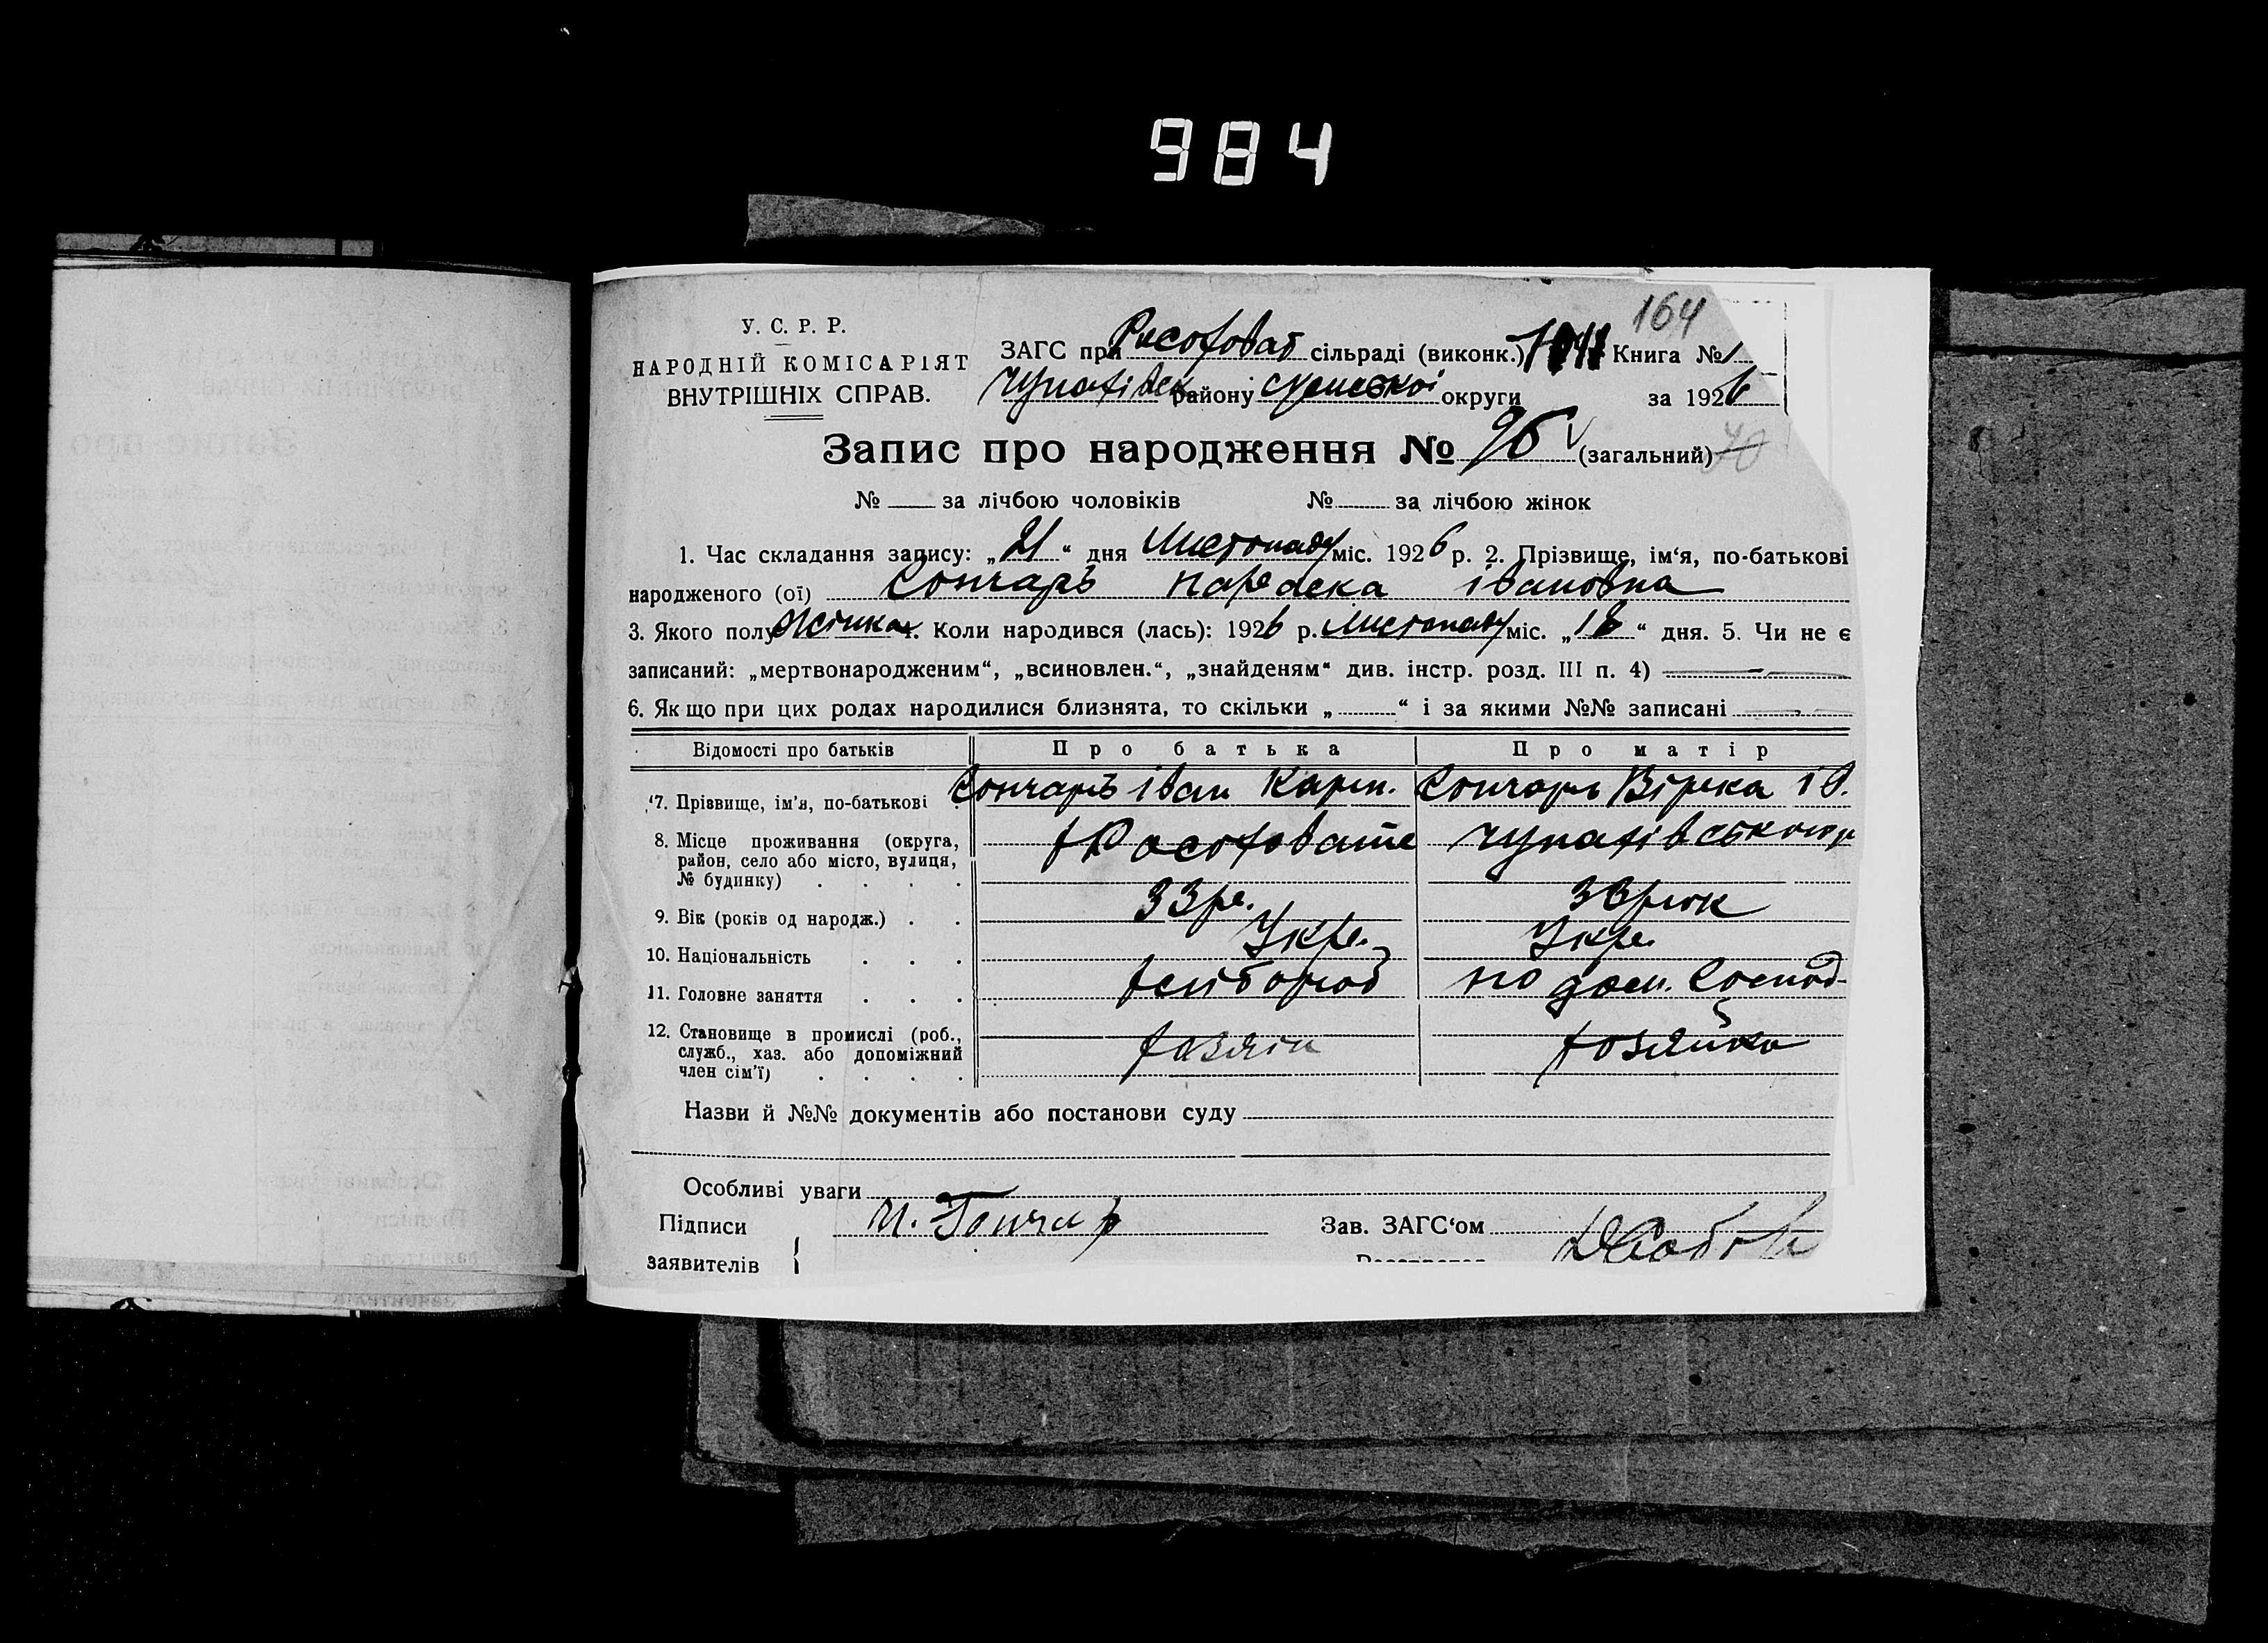 984
164
У. С. Р. Р.
НАРОДНІЙ КОМІСАРІЯТ
ВНУТРІШНІХ СПРАВ.
ЗАГС при Рясофоват сільраді (виконк.) Книга № 1
Чупахівск району сумської округи за 1926
Запис про народження № 96 (загальний) 70
№ за лічбою чоловіків № за лічбою жінок
1. Час складання запису: „21“ дня Листопаду міс. 1926 р. 2. Прізвище, ім‘я, по-батькові
народженого (ої) Гончаръ параска івановна
3. Якого полу Жінка 4. Коли народився (лась): 1926 р. Листопаду міс. „18“ дня. 5. Чи не є
записаний: „мертвонародженим“, „всиновлен.“, „знайденям“ див. інстр. розд. III п. 4)
6. Якщо при цих родах народилися близнята, то скільки „ “ і за якими №№ записані
Відомості про батьків Про батька Про матір
7. Прізвище, ім‘я, по-батькові Гончаръ іван Карп. Гончаръ Вірка
8. Місце проживання (округа,
район, село або місто, вулиця,
№ будинку)
9. Вік (років од народж.) 33
10. Національність Укр. Укр.
11. Головне заняття хлібороб по дом. Господ.
12. Становище в промислі (роб.,
служб., хаз. або допоміжний
член сім‘ї) хозяін хозяйка
Назви й №№ документів або постанови суду
Особливі уваги
Підписи И. Гончар Зав. ЗАГС‘ом
заявителів